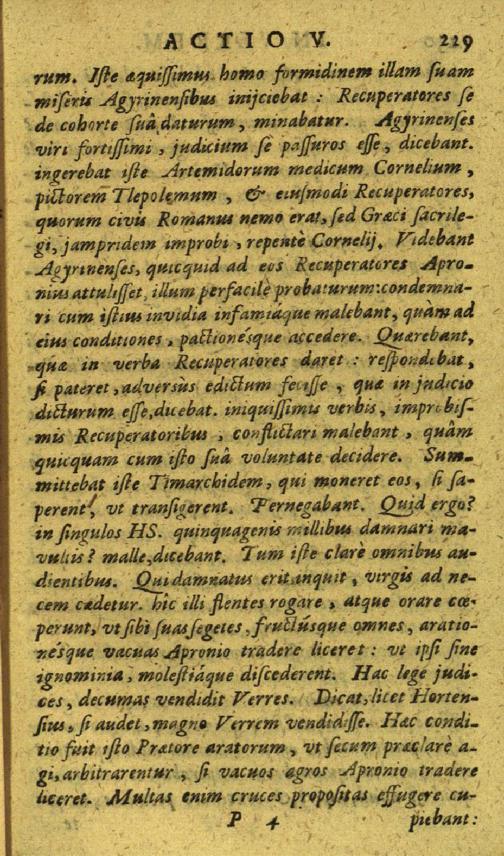 ACTIO V. 229
rum. Iſte æquiſſimus homo formidinem illam ſuam
miſeris Agyrinenſibus inijciebat : Recuperatores ſe
de cohorte ſuâ daturum, minabatur. Agyrinenſes
viri fortiſſimi, judicium ſe paſſuros eſſe, dicebant.
ingerebat iſte Artemidorum medicum Cornelium,
pictorem Tlepolemum, & eiuſmodi Recuperatores,
quorum civis Romanus nemo erat, ſed Græci ſacrile-
gi, jampridem improbi, repentè Cornelij. Videbant
Agyrinenſes, quicquid ad eos Recuperatores Apro-
nius attuliſſet, illum perfacilè probaturum: condemna-
ri cum iſtius invidia infamiáque malebant, quàm ad
eius conditiones, pactionéſque accedere. Quærebant,
quæ in verba Recuperatores daret : reſpondebat,
ſi pateret, adversùs edictum feciſſe, quæ in judicio
dicturum eſſe, dicebat. iniquiſſimis verbis, improbiſ-
mis Recuperatoribus, conflictari malebant, quàm
quicquam cum iſto ſuâ voluntate decidere. Sum-
mittebat iſte Timarchidem, qui moneret eos, ſi ſa-
perent, vt tranſigerent. Pernegabant. Quid ergo?
in ſingulos HS. quinquagenis millibus damnari ma-
vultis? malle, dicebant. Tum iſte clarè omnibus au-
dientibus. Qui damnatus erit, inquit, virgis ad ne-
cem cædetur. hîc illi flentes rogare, atque orare cœ-
perunt, vt ſibi ſuas ſegetes, fructúſque omnes, aratio-
néſque vacuas Apronio tradere liceret : vt ipſi ſine
ignominia, moleſtiáque diſcederent. Hac lege judi-
ces, decumas vendidit Verres. Dicat, licet Horten-
ſius, ſi audet, magno Verrem vendidiſſe. Hæc condi-
tio fuit iſto Prætore aratorum, vt ſecum præclarè a-
gi, arbitrarentur, ſi vacuos agros Apronio tradere
liceret. Multas enim cruces propoſitas effugere cu-
P 4 piebant: